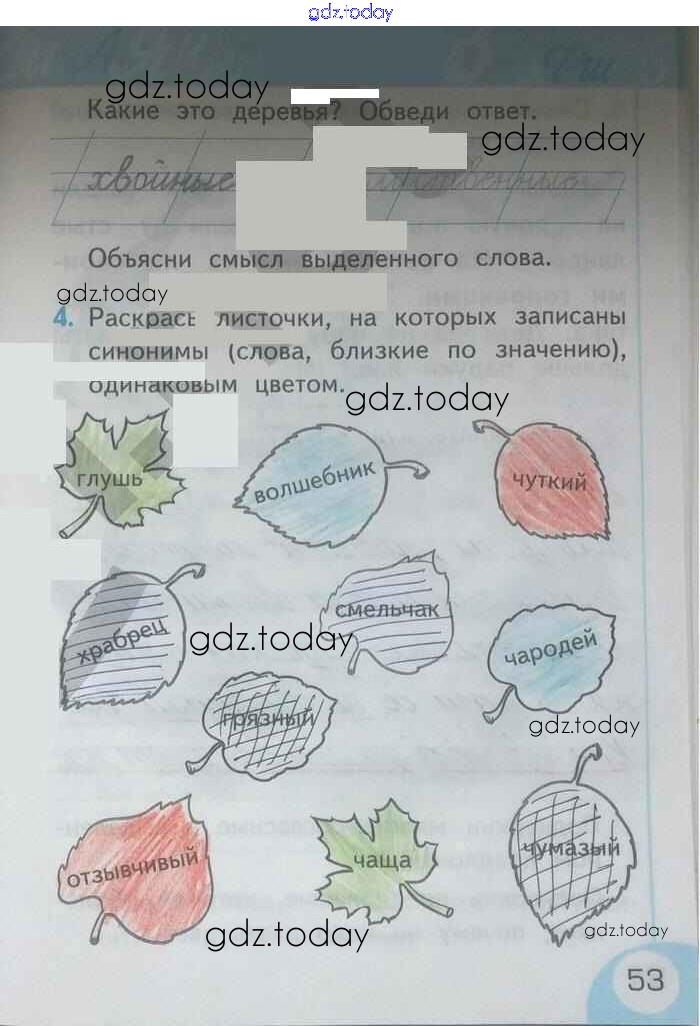 gdz.today
gdz.today
Какие это деревья? Обведи ответ.
gdz.today
хвойные
Объясни смысл выделенного слова.
gdz.today
4. Раскрась листочки, на которых записаны
синонимы (слова, близкие по значению),
одинаковым цветом.
gdz.today
глушь волшебник чуткий
храбрец смельчак
gdz.today
чародей
грязный
gdz.today
отзывчивый чаща чумазый
gdz.today
gdz.today
53